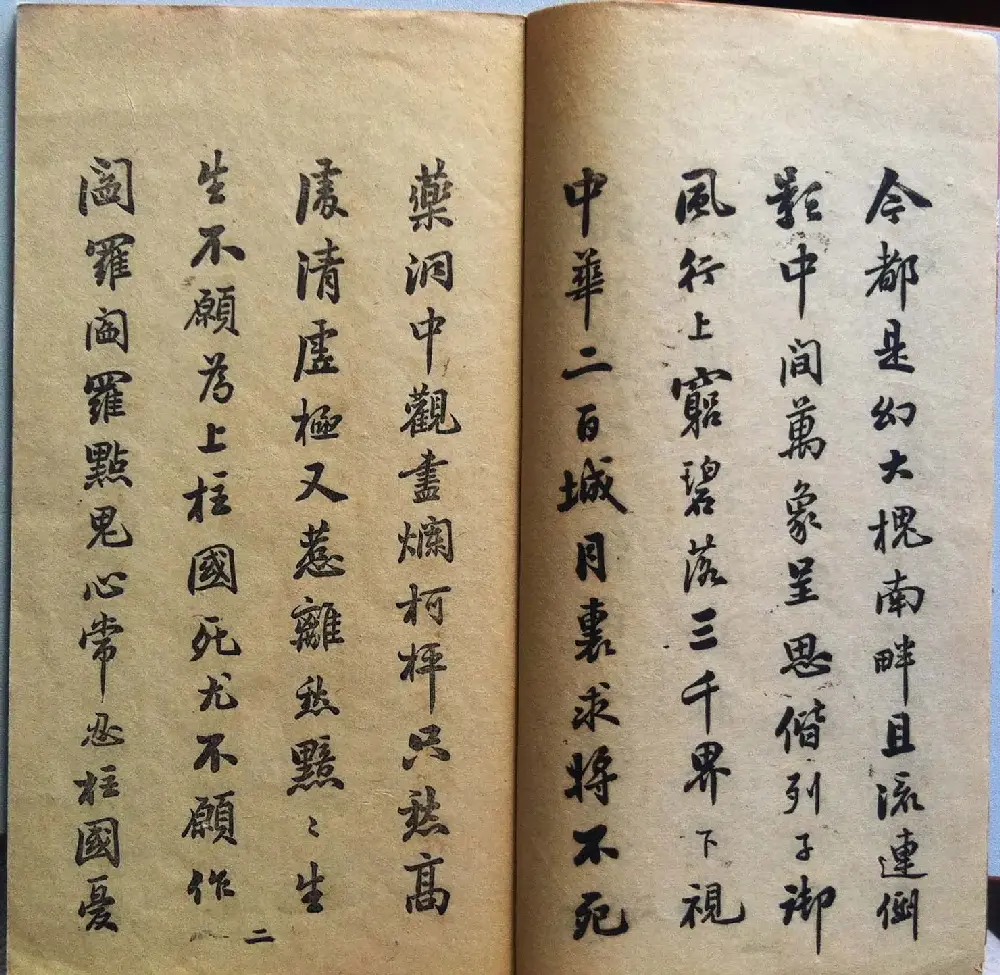 今都是幻大槐南畔且流連倒
影中間萬象呈思偕列子御
風行上窮碧落三千界下視
中華二百城月裏求將不死
藥洞中觀盡爛柯枰只愁高
處清虛極又惹離愁黯〻生
生不願為上柱國死尤不願作
閻羅閻羅點鬼心常忍柱國憂
二